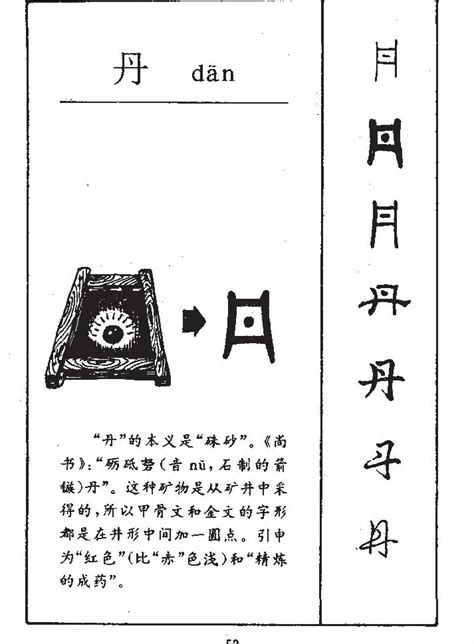 丹 dān
“丹”的本义是“硃砂”。《尚
书》:“砺砥砮(音nǔ,石制的箭
镞)丹”。这种矿物是从矿井中采
得的,所以甲骨文和金文的字形
都是在井形中间加一圆点。引申
为“红色”(比“赤”色浅)和“精炼
的成药”。
丹
丹
丹
丹
丹
丹
丹